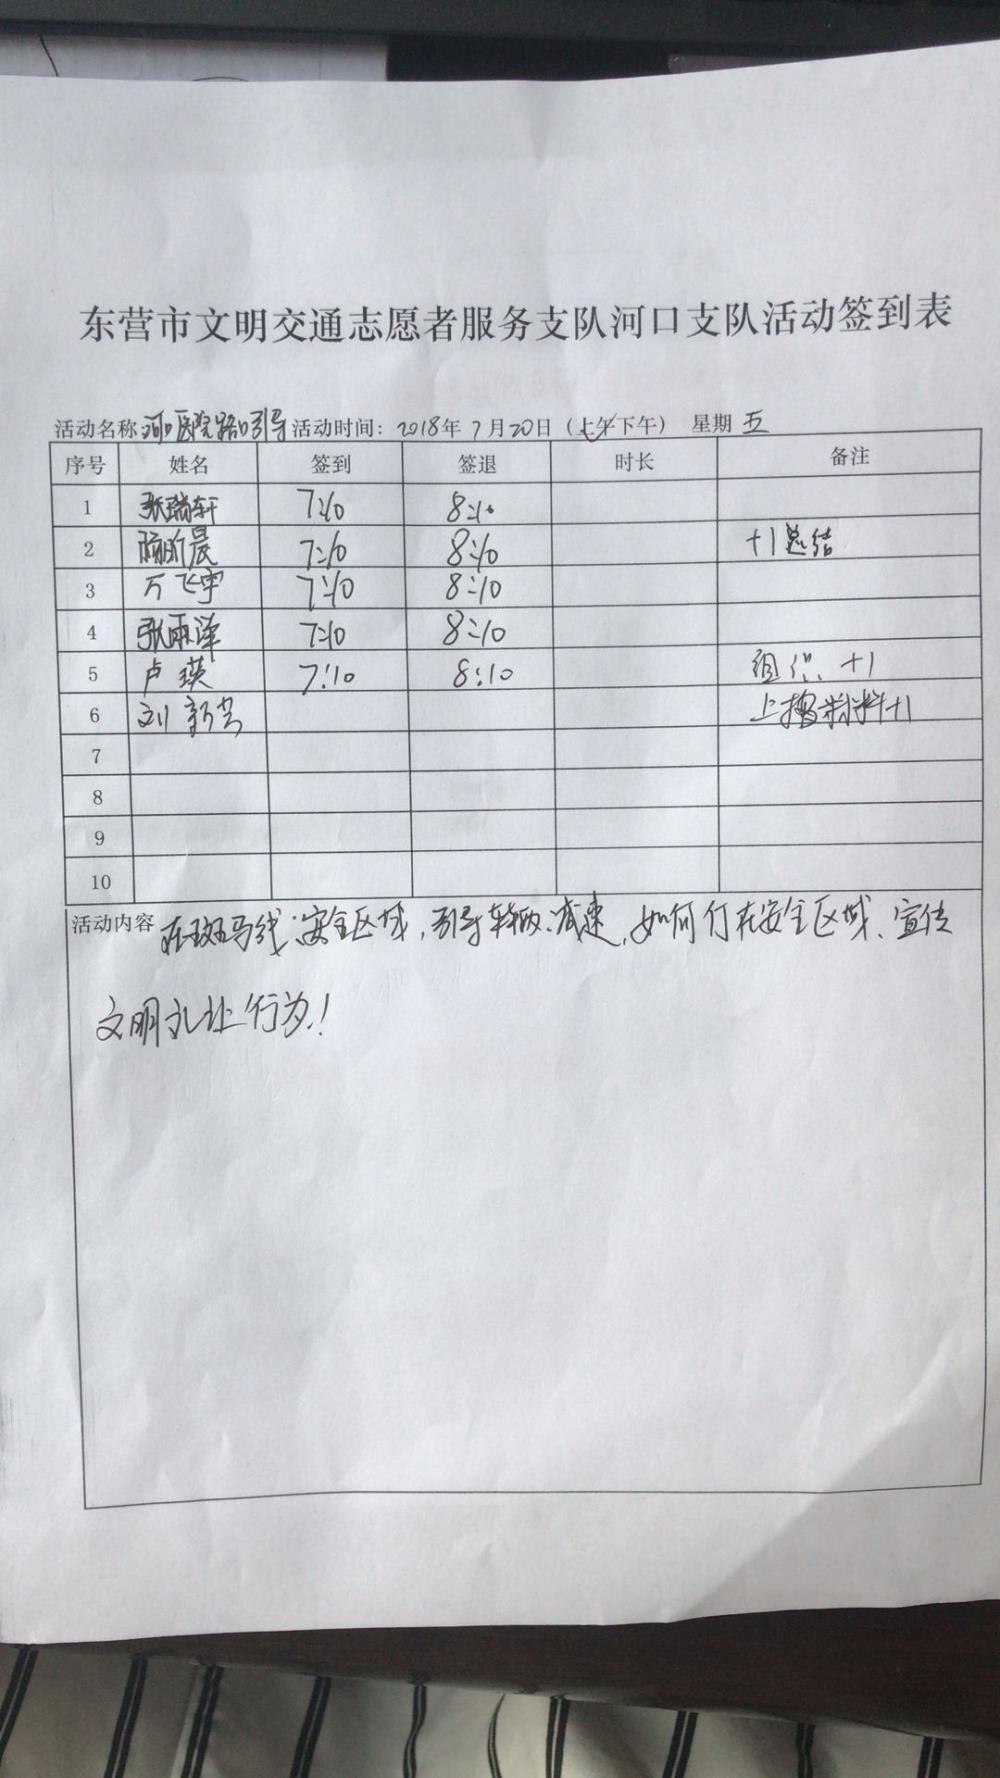 东营市文明交通志愿者服务支队河口支队活动签到表
活动名称 河口医院路口引导 活动时间：2018年7月20日（上午下午） 星期五
序号 姓名 签到 签退 时长 备注
1 张瑞轩 7:10 8:10
2 昕晨 7:10 8:10 +1总结
3 万飞宇 7:10 8:10
4 张雨泽 7:10 8:10
5 卢瑛 7:10 8:10 组织 +1
6 刘新芸 上 材料+1
7
8
9
10
活动内容 在斑马线、安全区域，引导车辆减速，如何行在安全区域、宣传
文明礼让行为！